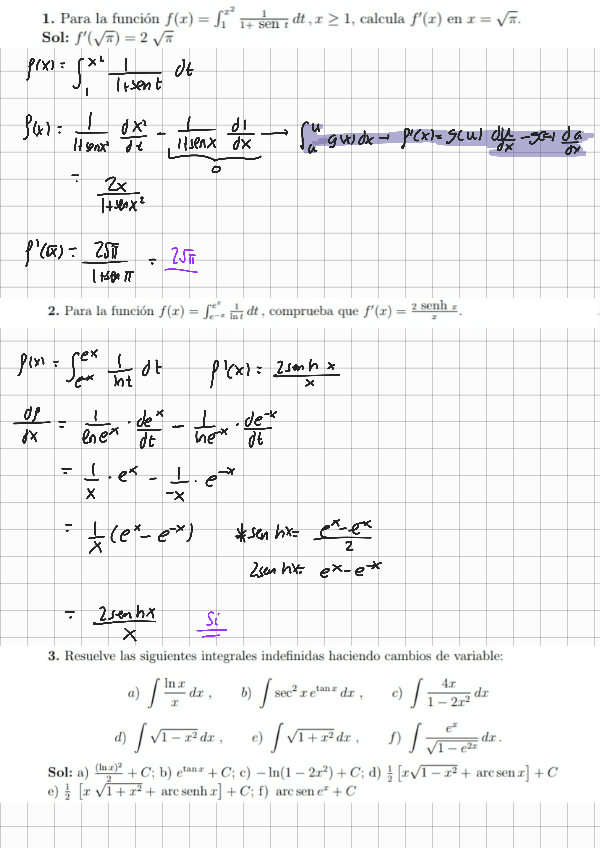 1. Para la función f(x) = ∫₁^{x²} 1/(1+ sen t) dt, x ≥ 1, calcula f′(x) en x = √π.
Sol: f′(√π) = 2 √π
f(x) = ∫₁^{x²} 1/(1+sen t) dt
f(x) = 1/(1+senx²) dx²/dt − 1/(1+senx) d1/dx → ∫ₐ^u g(x)dx → f'(x) = g(u) du/dx − g(a) da/dx
0
= 2x/(1+senx²)
f'(√π) = 2√π/(1+sen π) = 2√π
2. Para la función f(x) = ∫_{e^{−x}}^{e^x} 1/(ln t) dt, comprueba que f′(x) = (2 senh x)/x.
f(x) = ∫_{e^{-x}}^{e^x} 1/(lnt) dt f'(x) = (2senh x)/x
df/dx = 1/(ln e^x) · de^x/dt − 1/(ln e^{-x}) · de^{-x}/dt
= 1/x · e^x − 1/(-x) · e^{-x}
= 1/x (e^x − e^{-x}) *senhx = (e^x − e^{-x})/2
2senhx = e^x − e^{-x}
= (2senhx)/x Si
3. Resuelve las siguientes integrales indefinidas haciendo cambios de variable:
a) ∫ (ln x)/x dx , b) ∫ sec² x e^{tan x} dx , c) ∫ 4x/(1 − 2x²) dx
d) ∫ √(1 − x²) dx , e) ∫ √(1 + x²) dx , f) ∫ e^x/√(1 − e^{2x}) dx .
Sol: a) (ln x)²/2 + C; b) e^{tan x} + C; c) − ln(1 − 2x²) + C; d) ½ [x√(1 − x²) + arc sen x] + C
e) ½ [x √(1 + x²) + arc senh x] + C; f) arc sen e^x + C